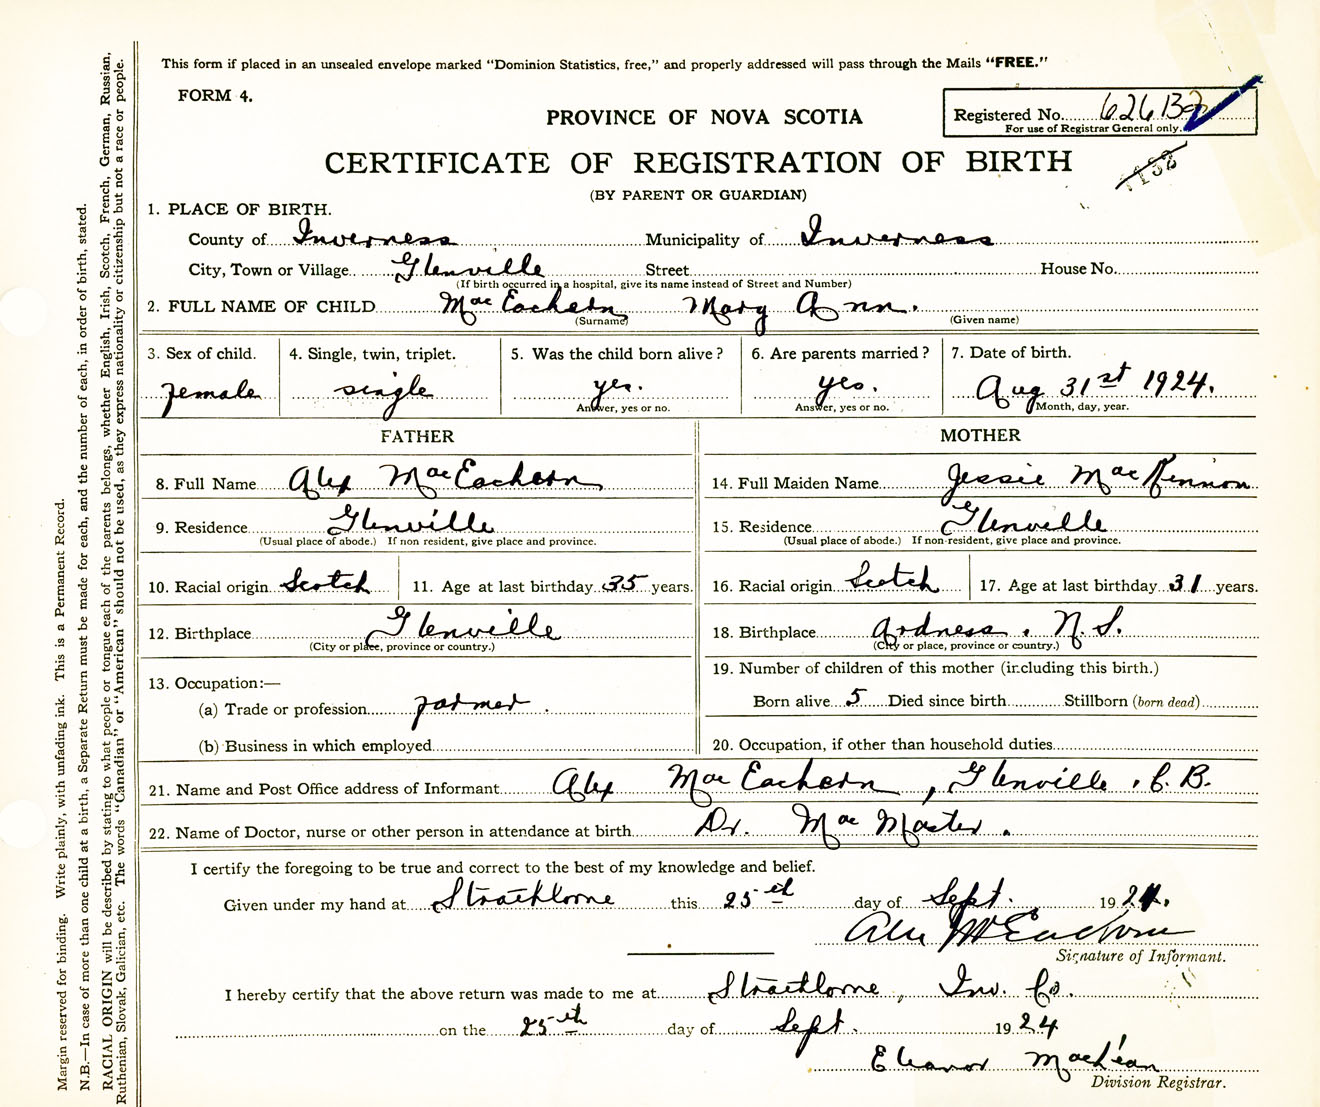 This form if placed in an unsealed envelope marked "Dominion Statistics, free," and properly addressed will pass through the Mails "FREE."
FORM 4.
PROVINCE OF NOVA SCOTIA
Registered No. 626132
For use of Registrar General only.
CERTIFICATE OF REGISTRATION OF BIRTH
(BY PARENT OR GUARDIAN)
1. PLACE OF BIRTH.
County of Inverness Municipality of Inverness
City, Town or Village Glenville Street House No.
(If birth occurred in a hospital, give its name instead of Street and Number)
2. FULL NAME OF CHILD MacEachern Mary Ann.
(Surname) (Given name)
3. Sex of child. 4. Single, twin, triplet. 5. Was the child born alive? 6. Are parents married? 7. Date of birth.
female single yes. yes. Aug 31st 1924.
Answer, yes or no. Answer, yes or no. Month, day, year.
FATHER MOTHER
8. Full Name Alex MacEachern 14. Full Maiden Name Jessie MacKinnon
9. Residence Glenville 15. Residence Glenville
(Usual place of abode.) If non resident, give place and province. (Usual place of abode.) If non-resident, give place and province.
10. Racial origin Scotch 11. Age at last birthday 35 years. 16. Racial origin Scotch 17. Age at last birthday 31 years.
12. Birthplace Glenville 18. Birthplace Ardness, N.S.
(City or place, province or country.) (City or place, province or country.)
13. Occupation:— 19. Number of children of this mother (including this birth.)
(a) Trade or profession farmer. Born alive 5 Died since birth Stillborn (born dead)
(b) Business in which employed 20. Occupation, if other than household duties
21. Name and Post Office address of Informant Alex MacEachern, Glenville, C.B.
22. Name of Doctor, nurse or other person in attendance at birth Dr. MacMaster.
I certify the foregoing to be true and correct to the best of my knowledge and belief.
Given under my hand at Strathlorne this 25th day of Sept. 1924.
Alex McEachern
Signature of Informant.
I hereby certify that the above return was made to me at Strathlorne, Inv. Co.
on the 25th day of Sept. 1924
Eleanor MacLean
Division Registrar.
Margin reserved for binding. Write plainly, with unfading ink. This is a Permanent Record.
N.B.—In case of more than one child at a birth, a Separate Return must be made for each, and the number of each, in order of birth, stated.
RACIAL ORIGIN will be described by stating to what people or tongue each of the parents belongs, whether English, Irish, Scotch, French, German, Russian,
Ruthenian, Slovak, Galician, etc. The words "Canadian" or "American" should not be used, as they express nationality or citizenship but not a race or people.